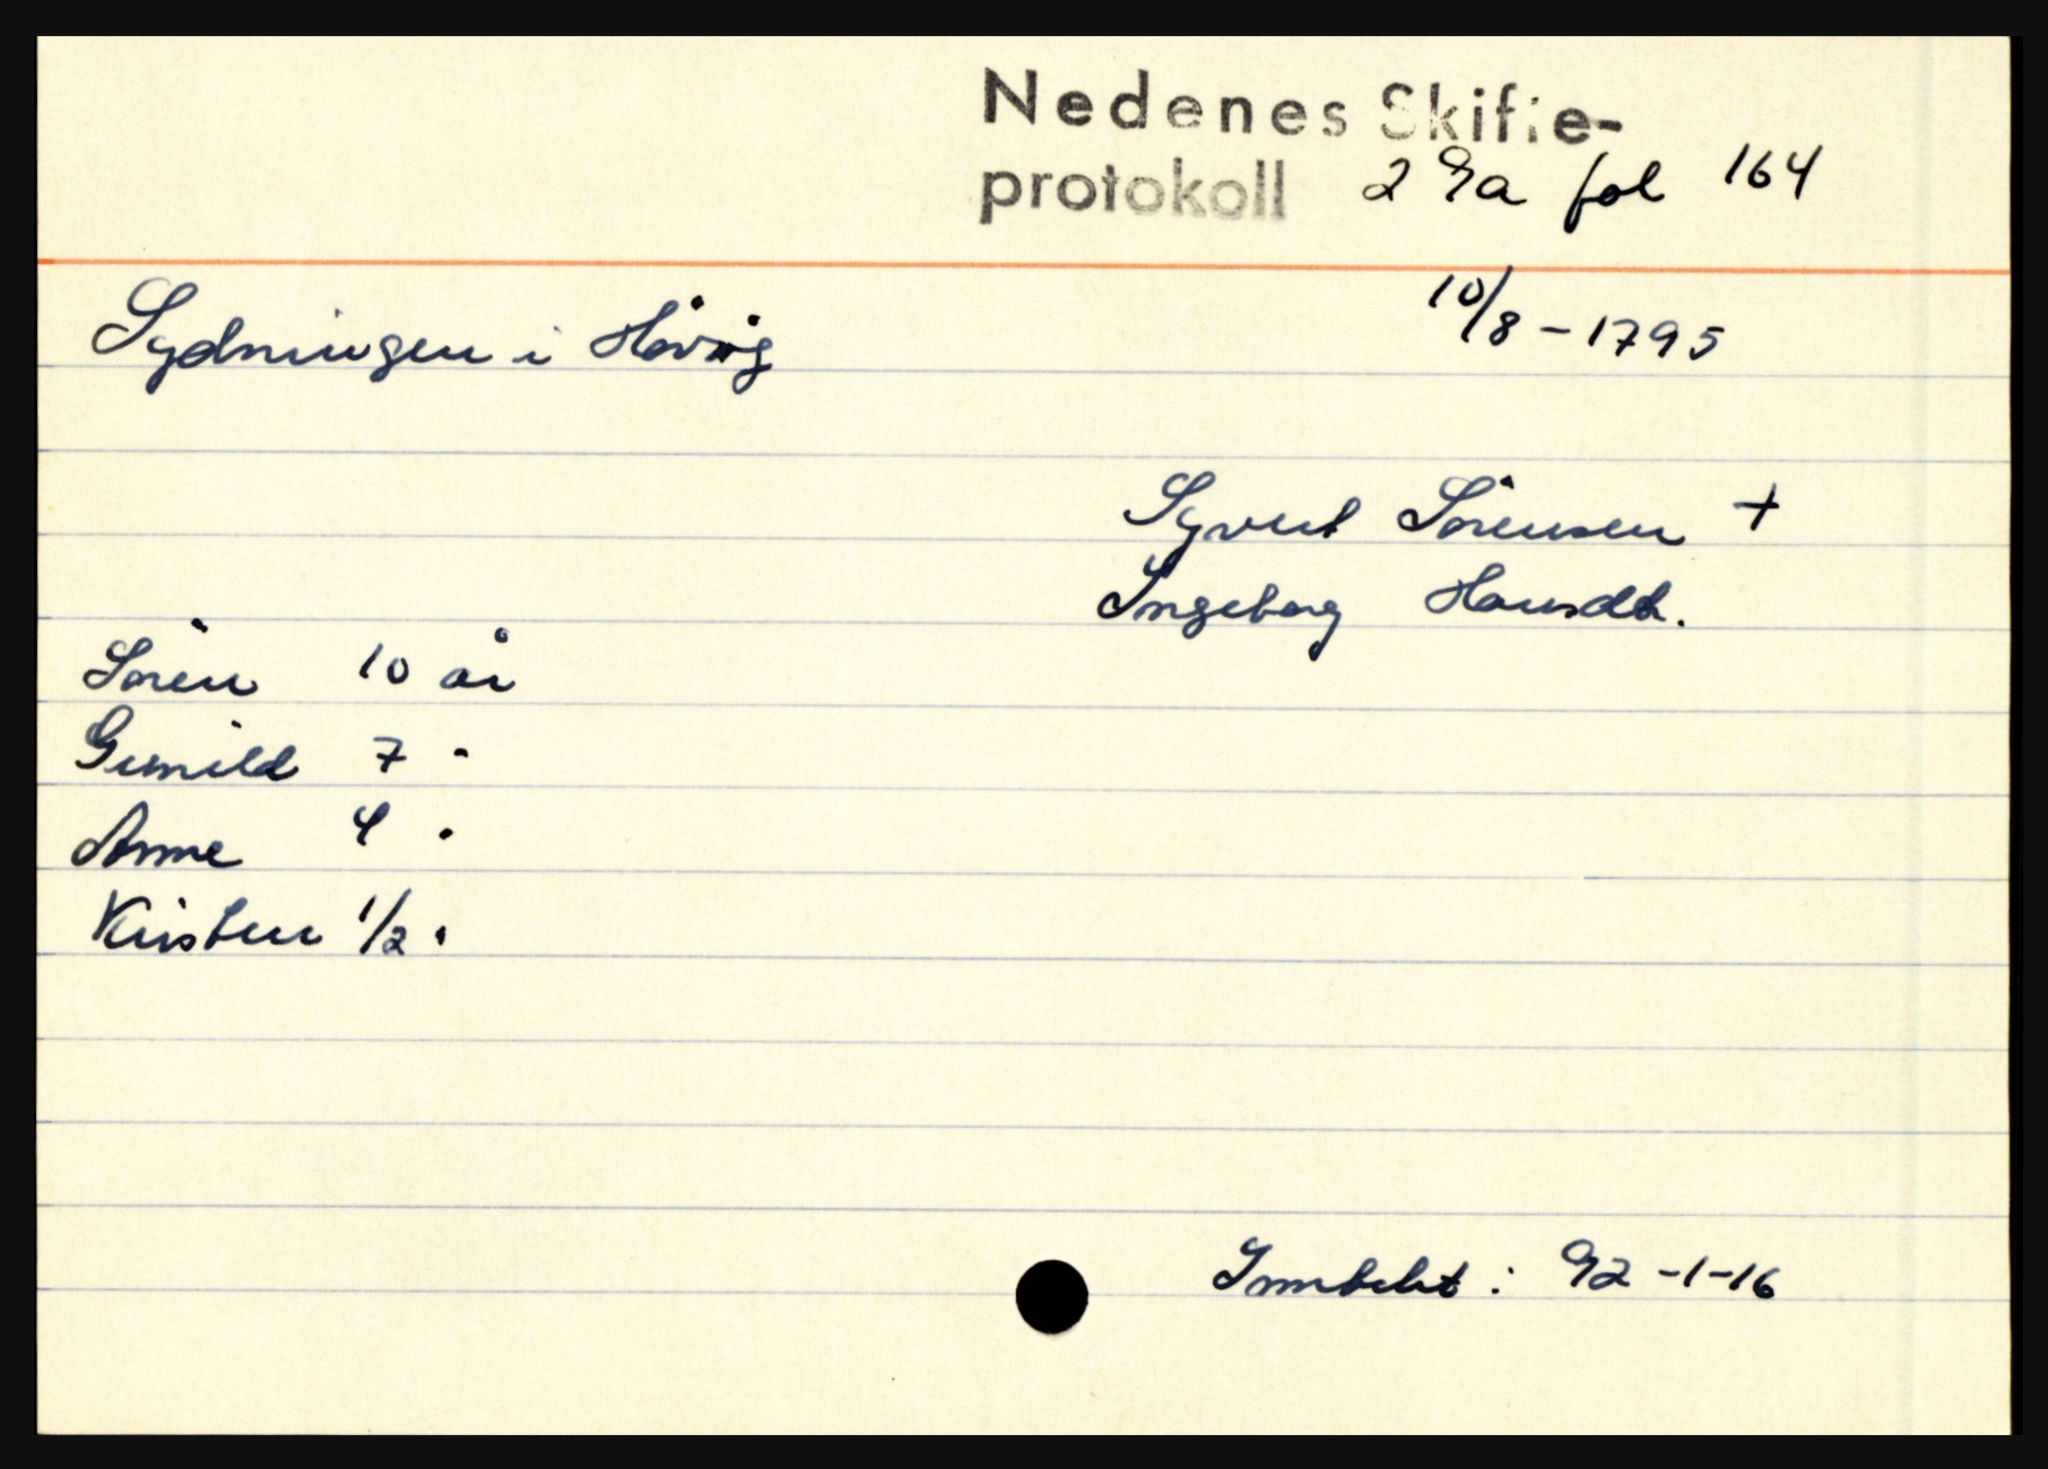 Nedenes Skifte-
protokoll 2 9a fol 164
Sydningen i Høvåg 10/8-1795
Syvert Sörensen +
Ingeborg Hansdt.
Sören 10 år
Gunild 7 "
Anne 4 "
Kirsten 1/2 "
Inntekt: 92-1-16